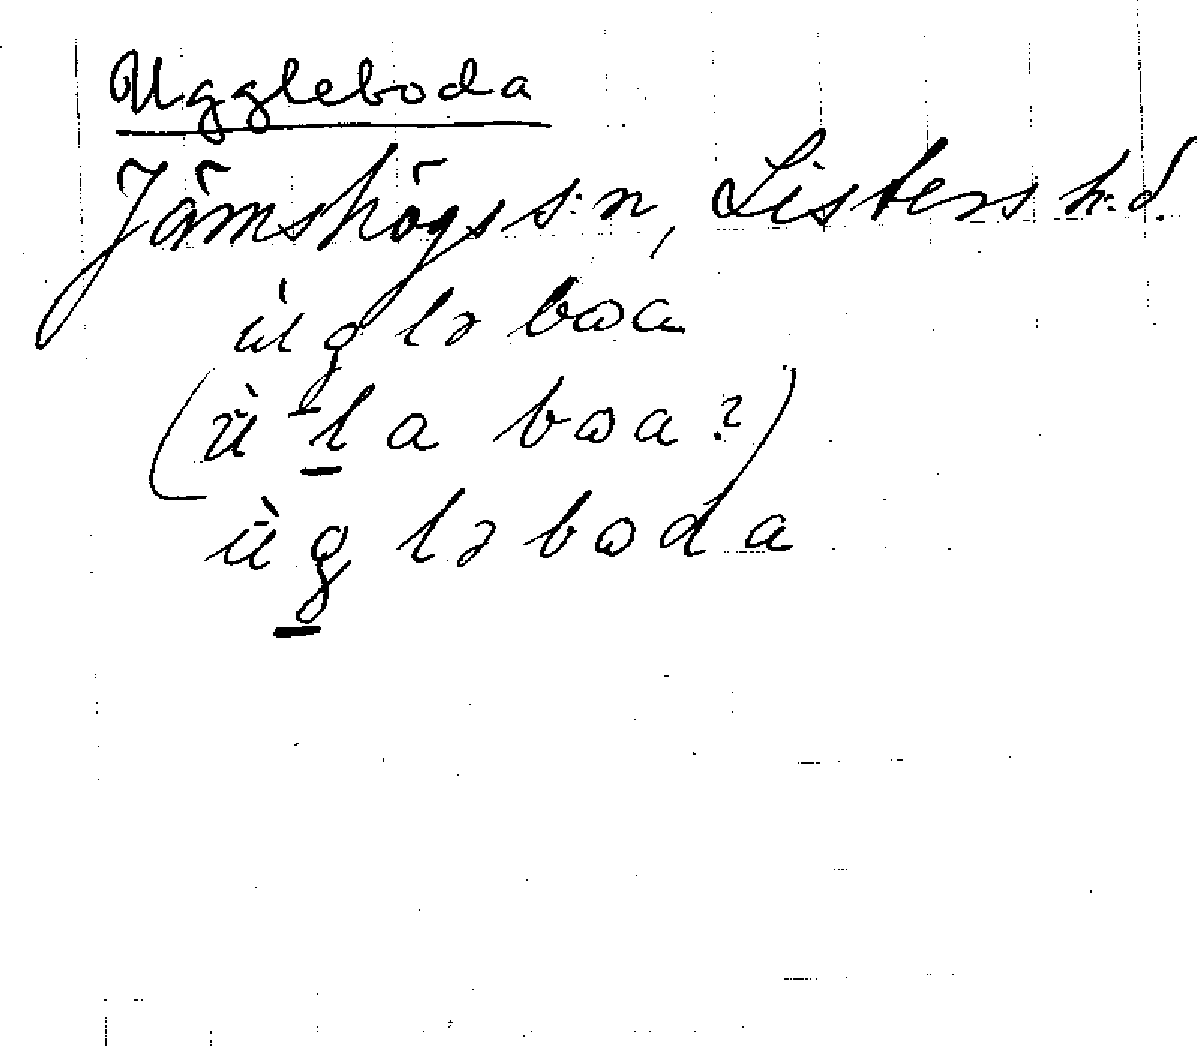 Uggleboda
Jämshögs s:n, Listers h:d.
ùgləbωa
(ùlabωa?)
ùgləbωda